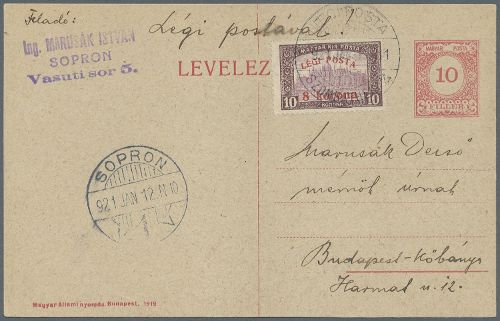 Feladó:
Légi postával.
Ing. MARUSÁK ISTVÁN
SOPRON
Vasuti sor 5.
LEVELEZ
MAGYAR KIR. POSTA
LÉGI POSTA
8 korona
10 KORONA 10
MAGYAR POSTA
10
FILLÉR
SOPRON
921 JAN 12
Marusák Dezső
mérnök úrnak
Budapest-Kőbánya
Harmat u. 12.
Magyar állami nyomda, Budapest, 1919